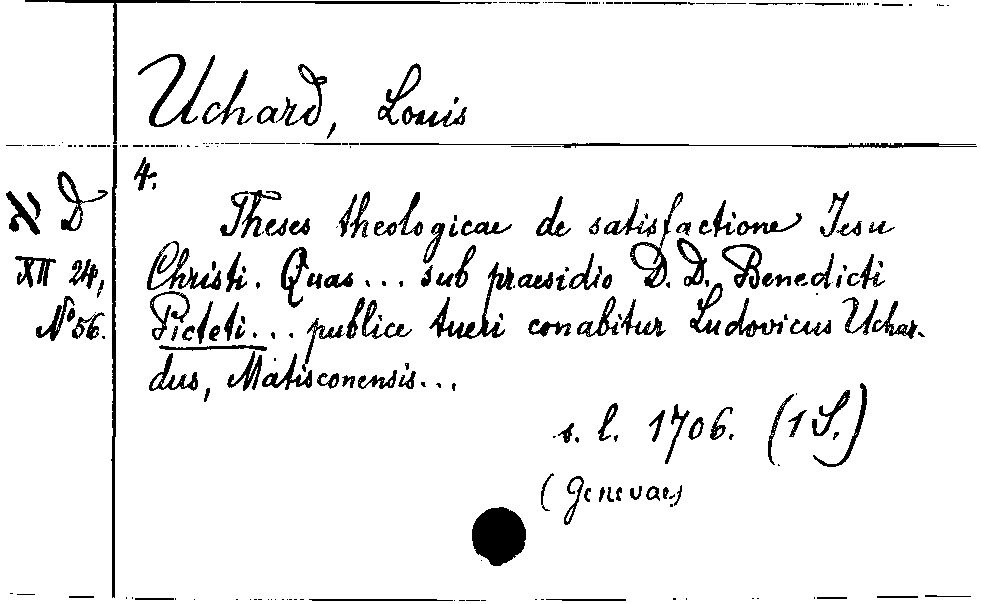 Uchard, Louis
4.
א D
XII 24,
No 56.
Theses theologicae de satisfactione Iesu
Christi. Quas... sub praesidio D. D. Benedicti
Picteti... publice tueri conabitur Ludovicus Uchar-
dus, Matisconensis...
s. l. 1706. (1 S.)
(Genevae)